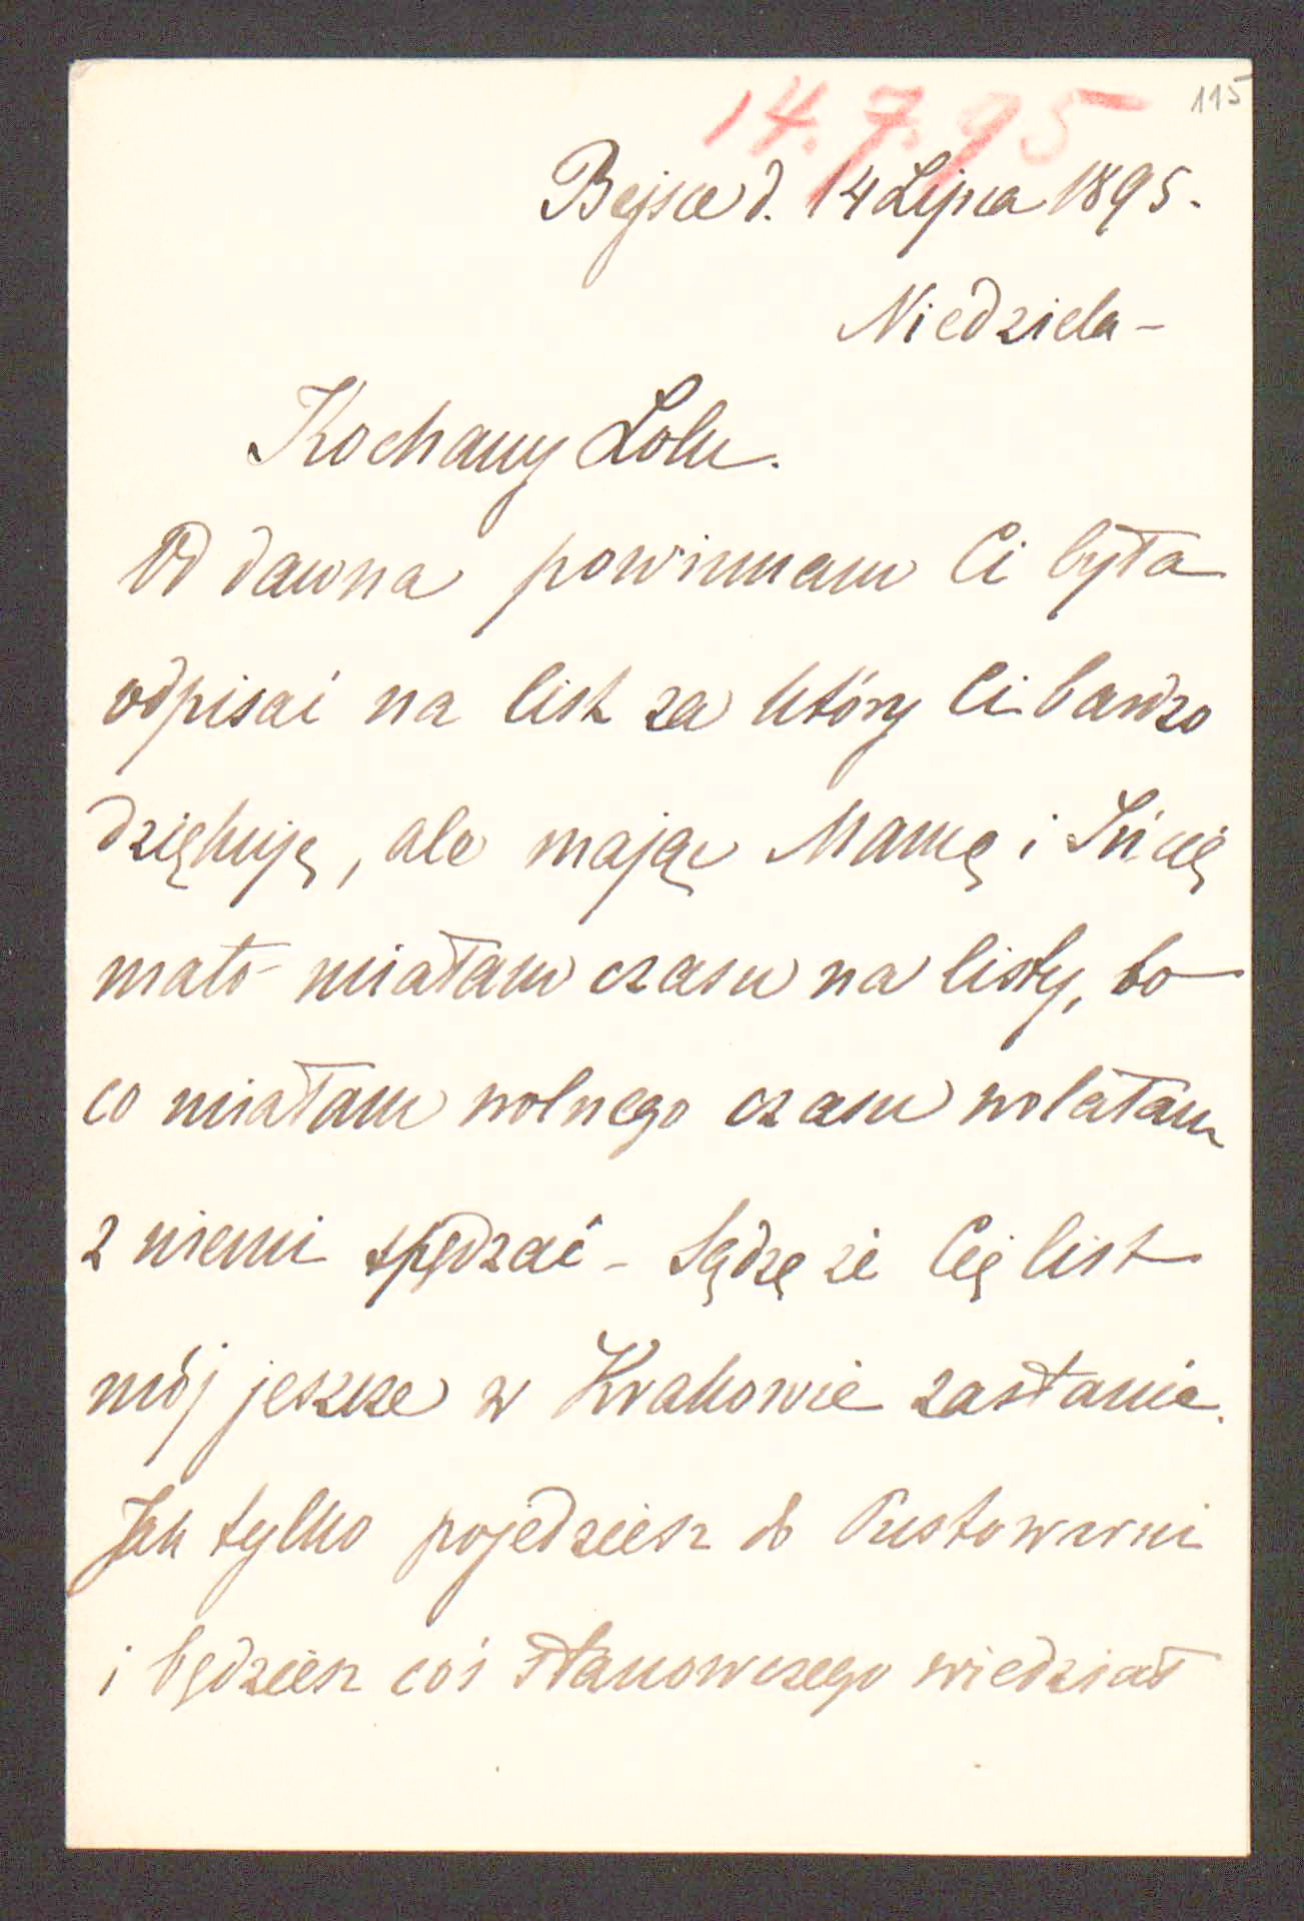 115
14.7.95
Bejsce d. 14 Lipca 1895.
Niedziela -
Kochany Lolu.
Od dawna powinnam Ci była
odpisać na list za który Ci bardzo
dziękuję, ale mając Mamę i
mało miałam czasu na listy, bo
co miałam wolnego czasu wolałam
z niemi spędzać - Sądzę że Cię list
mój jeszcze w Krakowie zastanie.
Jak tylko pojedziesz do
i będziesz coś stanowczego wiedział